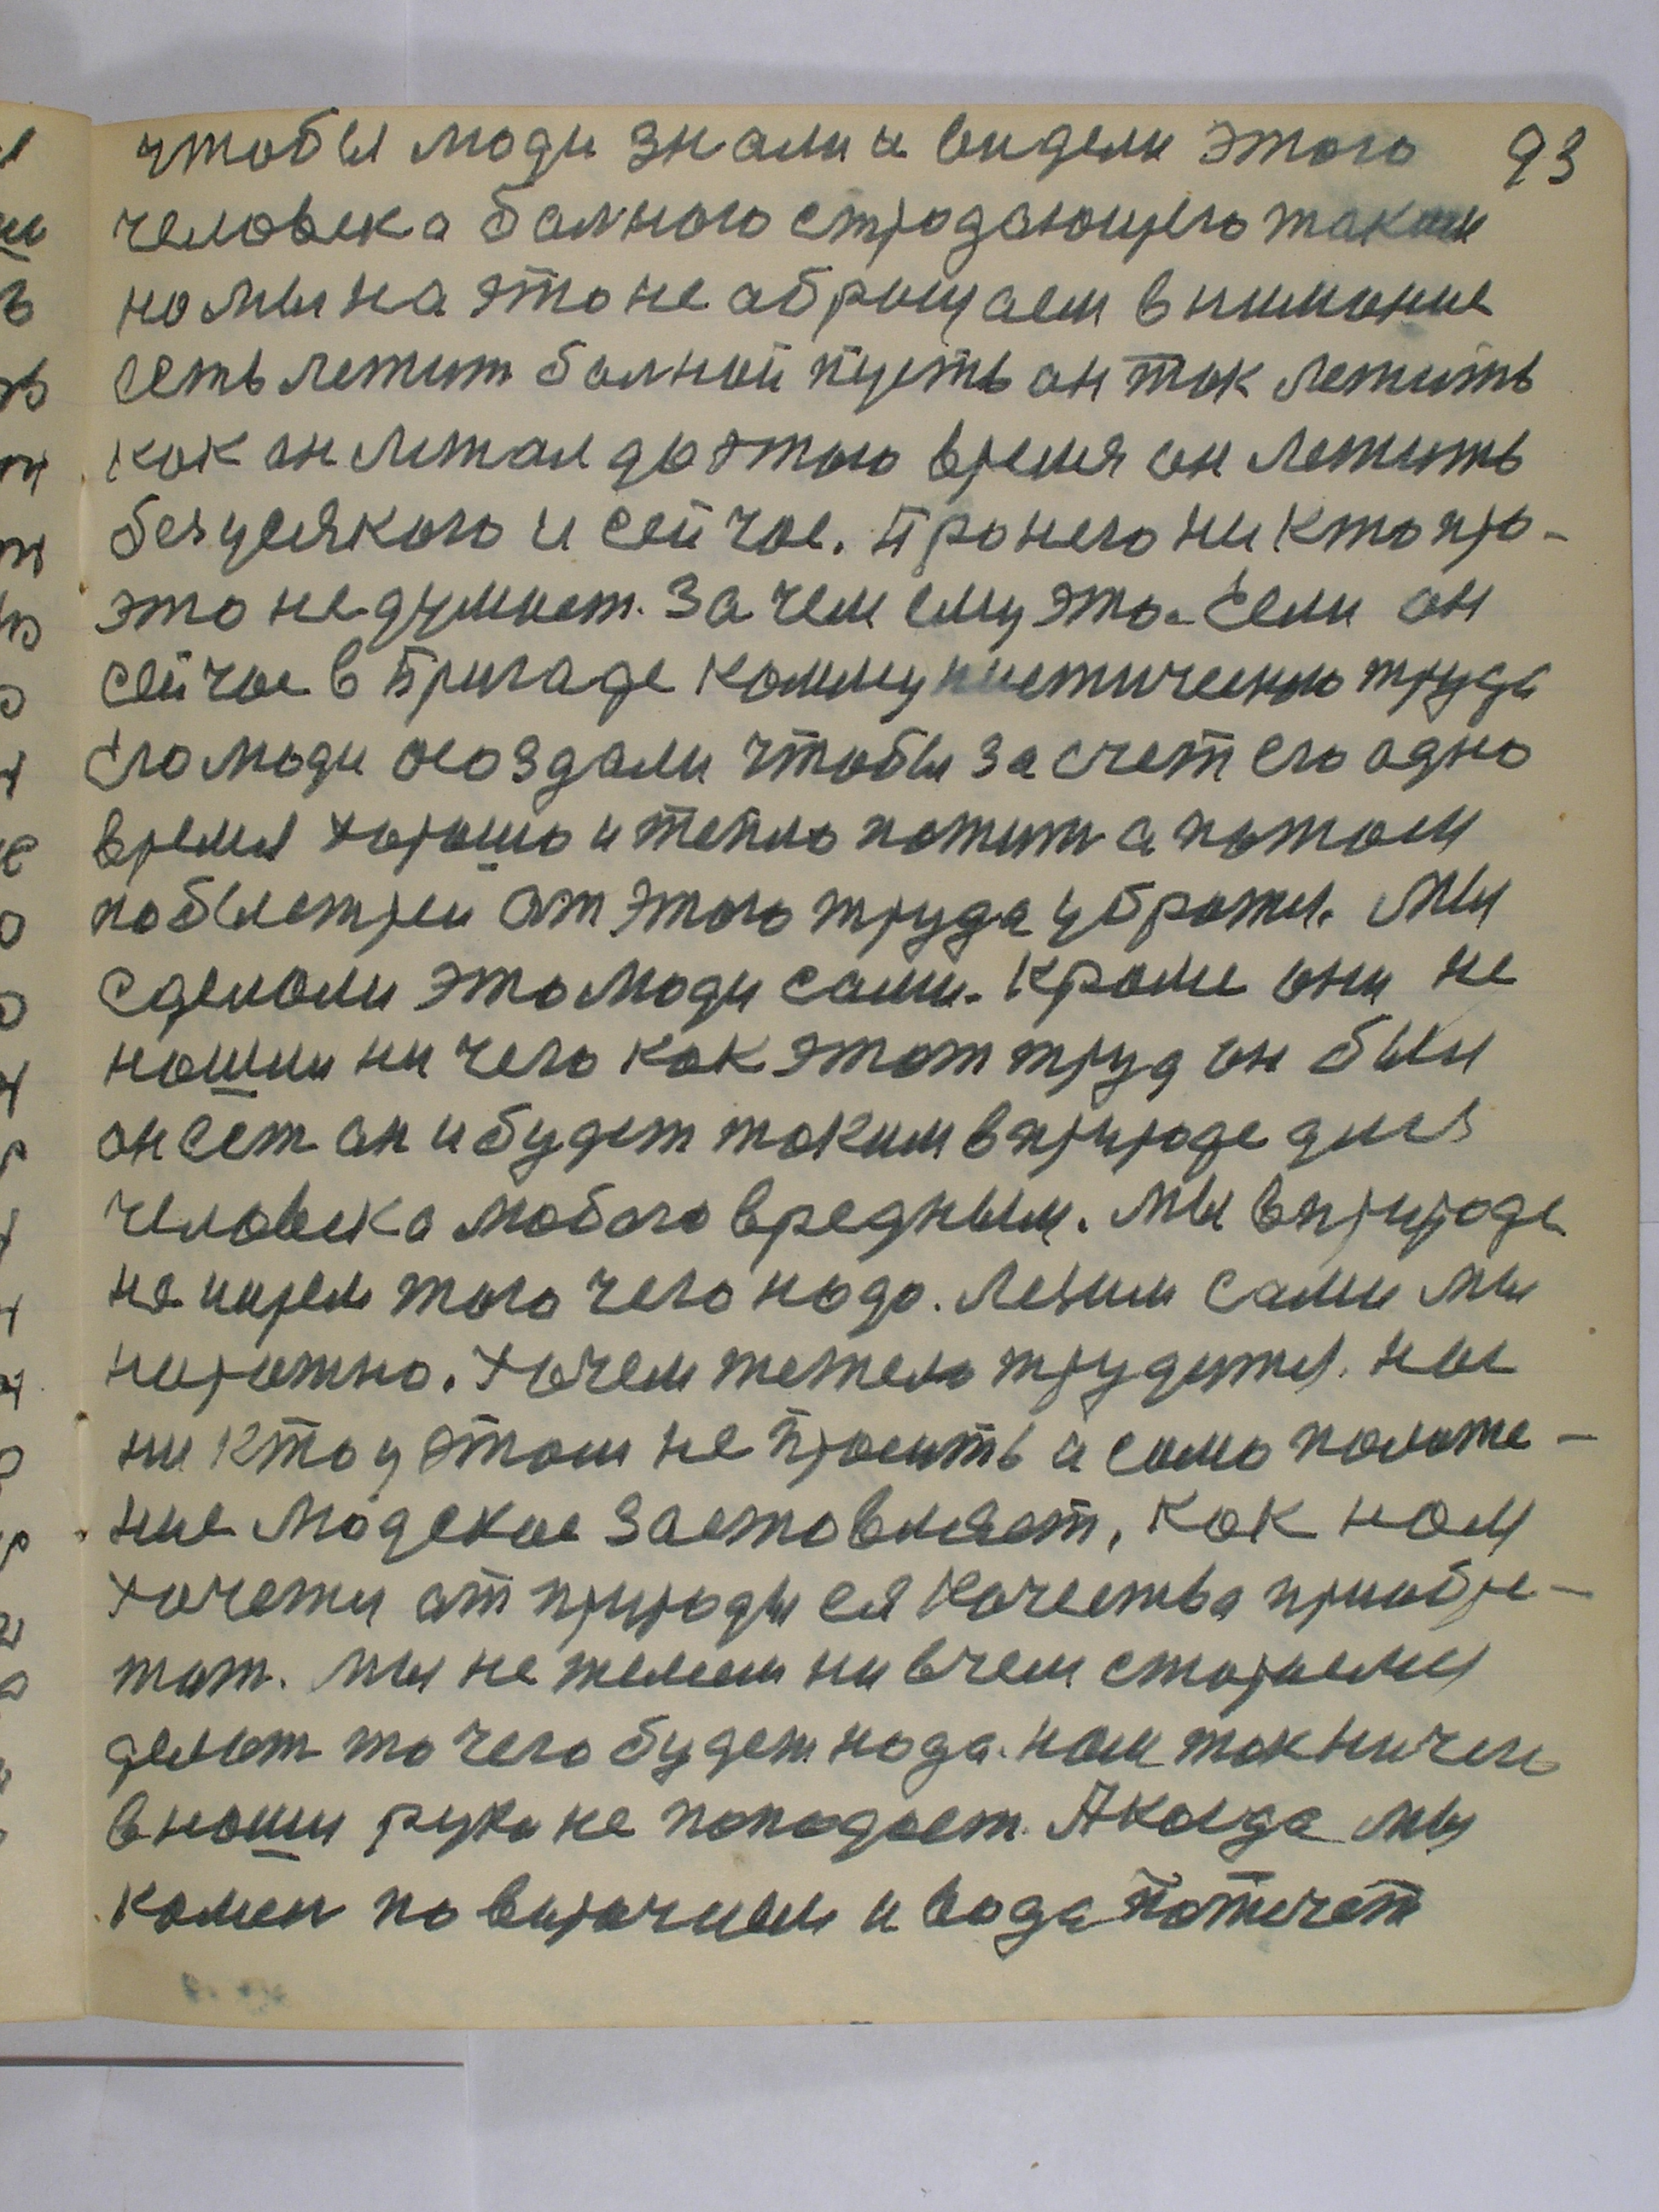 93
чтобы люди знали и видели этого
человека балного страдающего таким
но мы на это не абращаем внимание
есть лежит балной пусть он так лежить
как он лежал до этого время он лежить
без усякого и сейчас. Про него ни кто про-
это не думает. За чем ему это. Если он
сейчас в Бригаде коммунистического труда
его люди создали чтобы за счет его адно
время хорошо и тепло пожит а потом
побыстрей от этого труда убратся. Мы
сделали это люди сами. Кроме они не
нашли ни чего как этот труд он был
он ест он и будет таким в природе для
человека любого вредным. Мы в природе
не ищем того чего надо. Лезим сами мы
нарожно. Хочем тежело трудится. нас
ни кто у этом не просить а само положе-
ние людское заставляет. Как нам
хочется от природы ея качества приобре-
тат. Мы не желаем ни в чем стараемся
делат то чего будет нада. нам так ничего
в наши руки не попадает. А когда мы
камен по вирочием и вода потичет